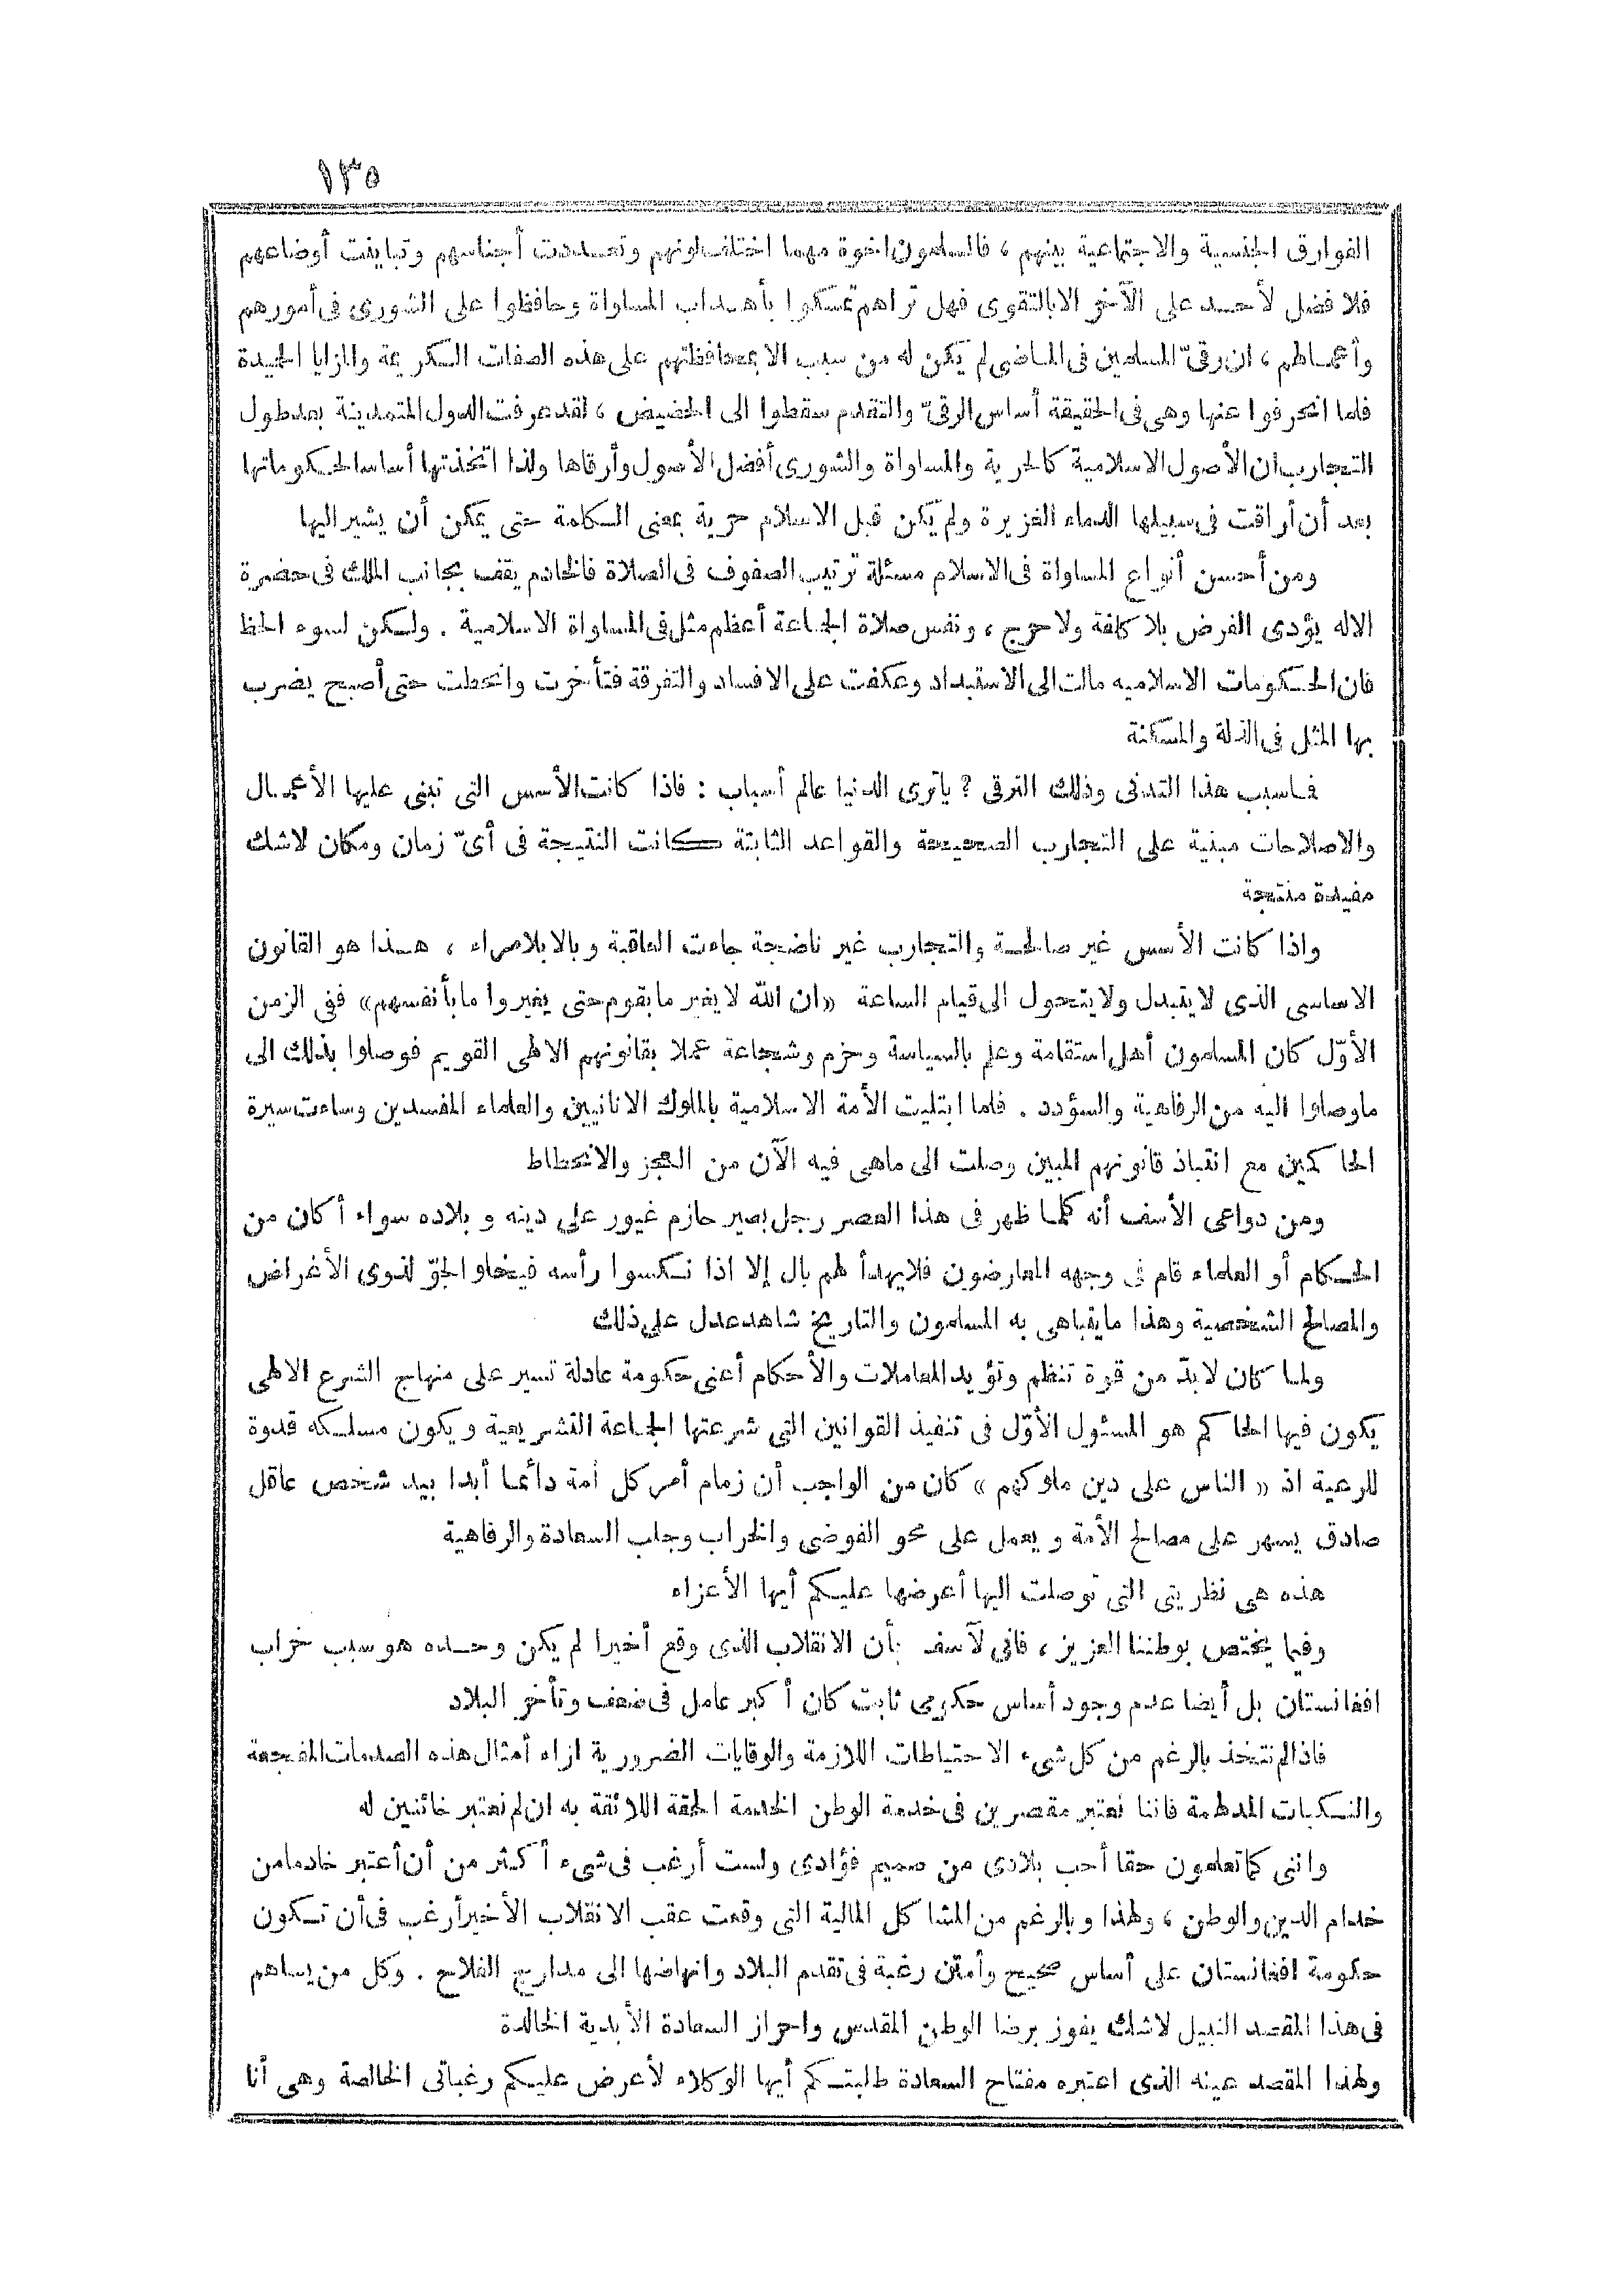 ١٣٥
الفوارق الجنسية والاجتماعية بينهم ، فالمسلمون اخوة مهما اختلف لونهم وتعددت أجناسهم وتباينت أوضاعهم
فلا فضل لأحد على الآخر الا بالتقوى فهل تراهم تمسكوا بأهداب المساواة وحافظوا على الشورى فى أمورهم
وأعمالهم ، ان رقىّ المسلمين فى الماضى لم يكن له من سبب الا بمحافظتهم على هذه الصفات الكريمة والمزايا الحميدة
فلما انحرفوا عنها وهى فى الحقيقة أساس الرقىّ والتقدم سقطوا الى الحضيض ، لقد عرفت الدول المتمدينة بعد طول
التجارب ان الأصول الاسلامية كالحرية والمساواة والشورى أفضل الأصول وأرقاها ولذا اتخذتها أساسا لحكوماتها
بعد أن أراقت فى سبيلها الدماء الغزيرة ولم يكن قبل الاسلام حرية بمعنى الكلمة حتى يمكن أن يشير اليها
ومن أحسن أنواع المساواة فى الاسلام مسئلة ترتيب الصفوف فى الصلاة فالخادم يقف بجانب الملك فى حضرة
الاله يؤدى الفرض بلا كلفة ولا حرج ، ونفس صلاة الجماعة أعظم مثل فى المساواة الاسلامية . ولكن لسوء الحظ
فان الحكومات الاسلاميه مالت الى الاستبداد وعكفت على الافساد والتفرقة فتأخرت وانحطت حتى أصبح يضرب
بها المثل فى الذلة والمسكنة
فما سبب هذا التدنى وذلك الترقى ? ياترى الدنيا عالم أسباب : فاذا كانت الأسس التى تبنى عليها الأعمال
والاصلاحات مبنية على التجارب الصحيحة والقواعد الثابتة كانت النتيجة فى أىّ زمان ومكان لاشك
مفيدة منتجة
واذا كانت الأسس غير صالحة والتجارب غير ناضجة جاءت العاقبة وبالا بلا مراء ، هذا هو القانون
الاساسى الذى لا يتبدل ولا يتحول الى قيام الساعة «ان الله لا يغير ما بقوم حتى يغيروا ما بأنفسهم» ففى الزمن
الأوّل كان المسلمون أهل استقامة وعلم بالسياسة وحزم وشجاعة عملا بقانونهم الالهى القويم فوصلوا بذلك الى
ماوصلوا اليه من الرفاهية والسؤدد . فلما ابتليت الأمة الاسلامية بالملوك الانانيين والعلماء المفسدين وساءت سيرة
الحاكمين مع انتباذ قانونهم المبين وصلت الى ماهى فيه الآن من العجز والانحطاط
ومن دواعى الأسف أنه كلما ظهر فى هذا العصر رجل بصير حازم غيور على دينه وبلاده سواء أكان من
الحكام أو العلماء قام فى وجهه المعارضون فلا يهدأ لهم بال إلا اذا نكسوا رأسه فيخلو الجوّ لذوى الأغراض
والمصالح الشخصية وهذا ما يتباهى به المسلمون والتاريخ شاهد عدل على ذلك
ولما كان لابدّ من قوة تنظم وتؤيد المعاملات والأحكام أعنى حكومة عادلة تسير على منهاج الشرع الالهى
يكون فيها الحاكم هو المسئول الأوّل فى تنفيذ القوانين التى شرعتها الجماعة التشريعية ويكون مسلكه قدوة
للرعية اذ « الناس على دين ملوكهم » كان من الواجب أن زمام أمر كل أمة دائما أبدا بيد شخص عاقل
صادق يسهر على مصالح الأمة ويعمل على محو الفوضى والخراب وجلب السعادة والرفاهية
هذه هى نظريتى التى توصلت اليها أعرضها عليكم أيها الأعزاء
وفيما يختص بوطننا العزيز ، فانى لآسف بأن الانقلاب الذى وقع أخيرا لم يكن وحده هو سبب خراب
افغانستان بل أيضا عدم وجود أساس حكومى ثابت كان أكبر عامل فى ضعف وتأخر البلاد
فاذا لم نتخذ بالرغم من كل شىء الاحتياطات اللازمة والوقايات الضرورية ازاء أمثال هذه الصدمات المفجعة
والنكبات المدلهمة فاننا نعتبر مقصرين فى خدمة الوطن الخدمة الحقة اللائقة به ان لم نعتبر خائنين له
واننى كما تعلمون حقا أحب بلادى من صميم فؤادى ولست أرغب فى شىء أكثر من أن أعتبر خادما من
خدام الدين والوطن ، ولهذا وبالرغم من المشاكل المالية التى وقعت عقب الانقلاب الأخير أرغب فى أن تكون
حكومة افغانستان على أساس صحيح وأمتن رغبة فى تقدم البلاد وانهاضها الى مدارج الفلاح . وكل من يساهم
فى هذا المقصد النبيل لاشك يفوز برضا الوطن المقدس واحراز السعادة الأبدية الخالدة
ولهذا المقصد عينه الذى اعتبره مفتاح السعادة طلبتكم أيها الوكلاء لأعرض عليكم رغباتى الخالصة وهى أنا